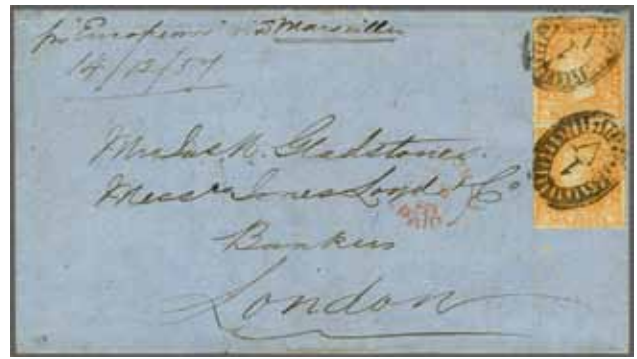 pr "European" via Marseilles
14/12/57
Gladstone
Messrs Jones Loyd & Co
Bankers
London